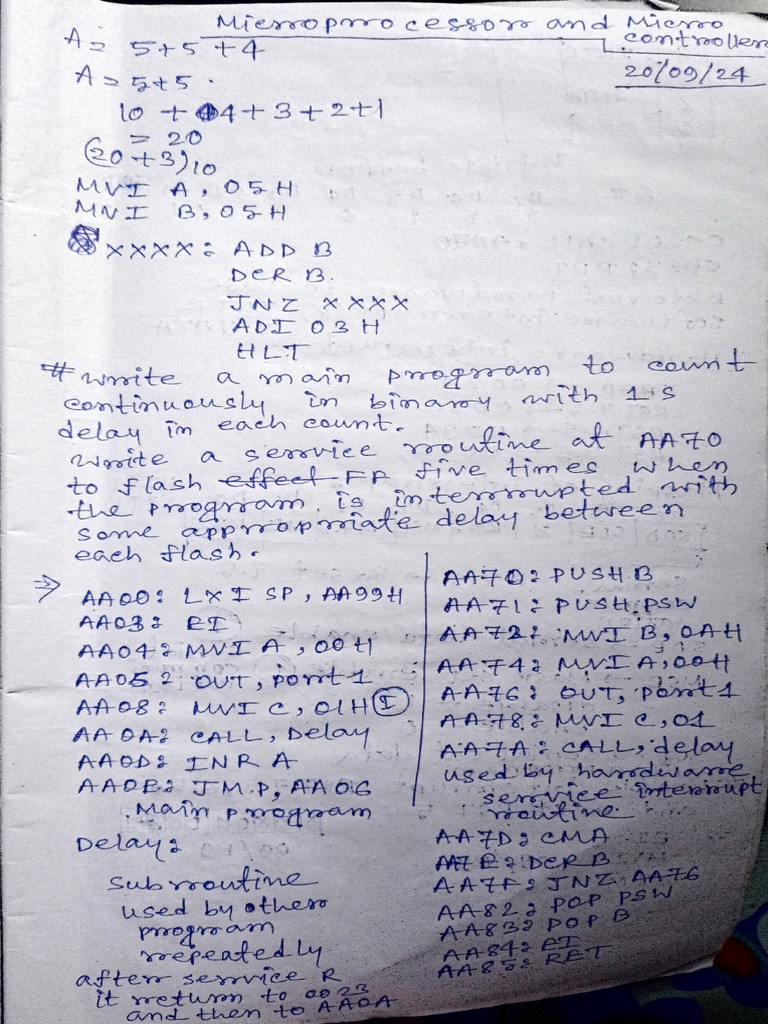 Microprocessor and Micro
controller
20/09/24
A = 5+5+4
A = 5+5.
10 + 4+3+2+1
= 20
(20+3)10
MVI A, 05H
MNI B, 05H
XXXX: ADD B
DCR B.
JNZ XXXX
ADI 03H
HLT
# Write a main program to count
continuously in binary with 1 s
delay in each count.
Write a service routine at AA70
to flash effect FF five times when
the program is interrupted with
some appropriate delay between
each flash.
⇒ AA00: LXI SP, AA99H
AA03: EI
AA04: MVI A, 00H
AA05: OUT, port 1
AA08: MVI C, 01H I
AA0A: CALL, Delay
AA0D: INR A
AA0E: JM.P, AA06
Main program
Delay:
subroutine
used by other
program
repeatedly
after service R
it return to 0023
and then to AA0A
AA70: PUSH B
AA71: PUSH PSW
AA72: MVI B, 0AH
AA74: MVI A, 00H
AA76: OUT, port 1
AA78: MVI C, 01
AA7A: CALL, delay
used by hardware
service interrupt
routine
AA7D: CMA
AA7E: DCR B
AA7F: JNZ AA76
AA82: POP PSW
AA83: POP B
AA84: EI
AA85: RET